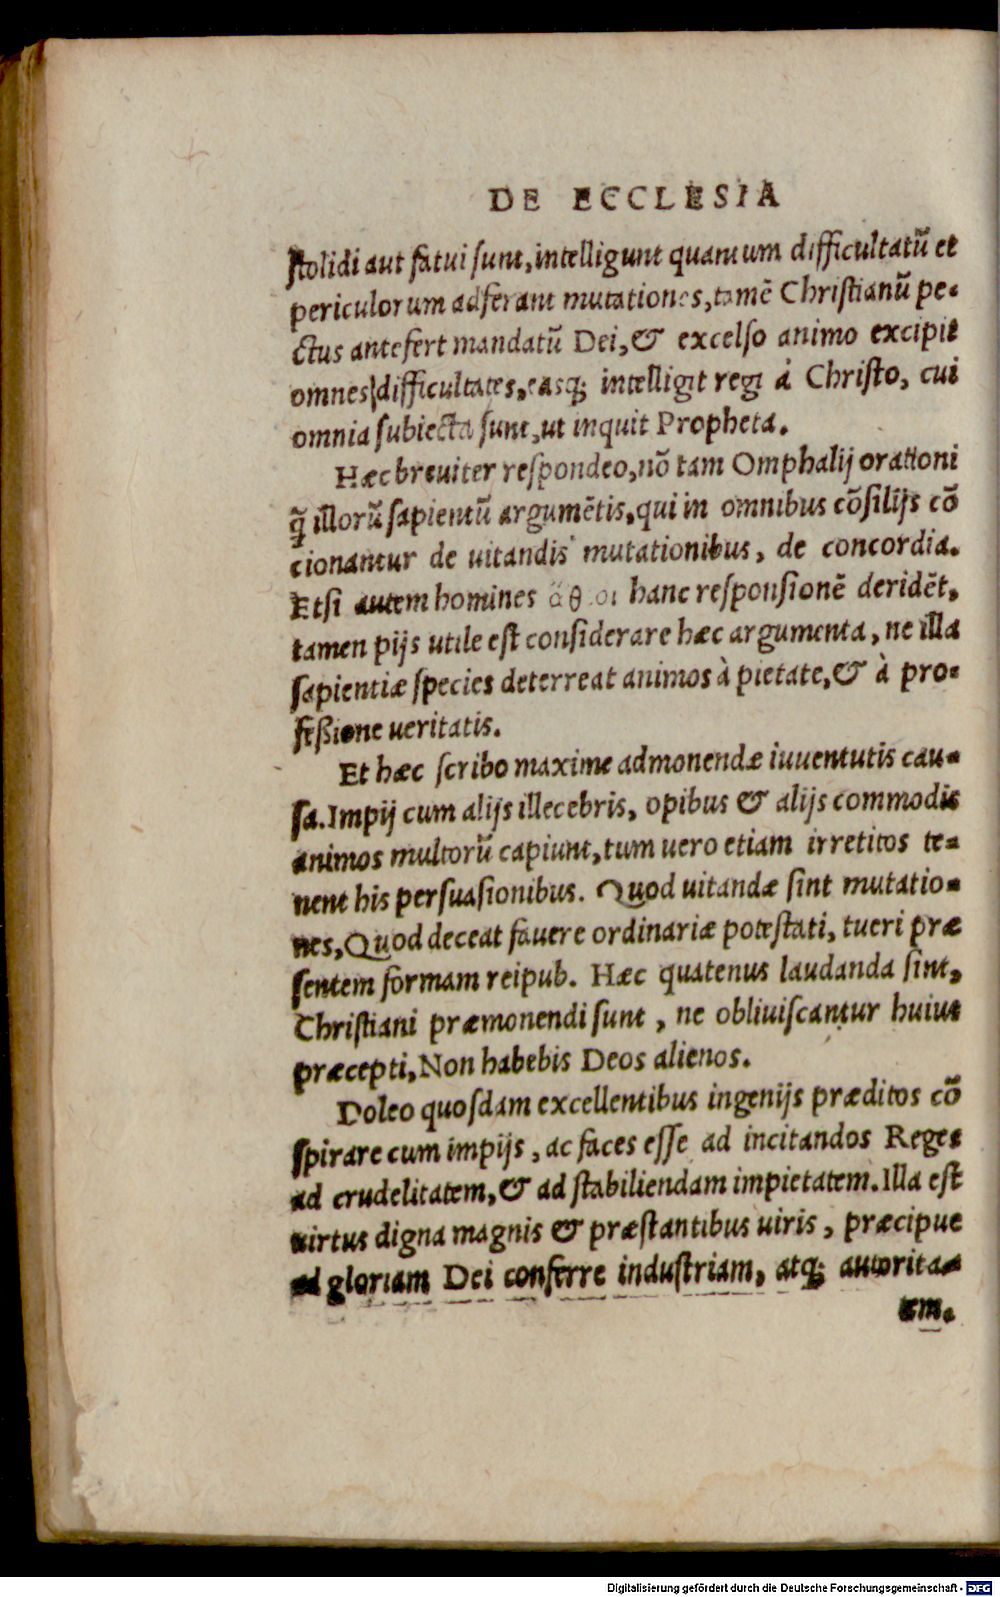 DE ECCLESIA
ſtolidi aut fatui ſunt, intelligunt quantum difficultatũ et
periculorum adferant mutationes, tamẽ Chriſtianũ pe-
ctus antefert mandatũ Dei, & excelſo animo excipit
omnes difficultates, easq; intelligit regi à Chriſto, cui
omnia ſubiecta ſunt, ut inquit Propheta.
Hæc breuiter reſpondeo, nõ tam Omphalij orationi
q̃ illorũ ſapientũ argumẽtis, qui in omnibus cõſilijs cõ
cionantur de uitandis mutationibus, de concordia.
Etſi autem homines hanc reſponſionẽ deridẽt,
tamen pijs utile eſt conſiderare hæc argumenta, ne illa
ſapientiæ ſpecies deterreat animos à pietate, & à pro-
feßione ueritatis.
Et hæc ſcribo maxime admonendæ iuuentutis cau-
ſa. Impij cum alijs illecebris, opibus & alijs commodis
animos multorũ capiunt, tum uero etiam irretitos te-
nent his perſuaſionibus. Quod uitandæ ſint mutatio-
nes, Quod deceat fauere ordinariæ poteſtati, tueri præ
ſentem formam reipub. Hæc quatenus laudanda ſint,
Chriſtiani præmonendi ſunt, ne obliuiſcantur huius
præcepti, Non habebis Deos alienos.
Doleo quoſdam excellentibus ingenijs præditos cõ
ſpirare cum impijs, ac faces eſſe ad incitandos Reges
ad crudelitatem, & ad ſtabiliendam impietatem. Illa eſt
uirtus digna magnis & præſtantibus uiris, præcipue
ad gloriam Dei conferre induſtriam, atq; autorita-
tem.
Digitalisierung gefördert durch die Deutsche Forschungsgemeinschaft - DFG